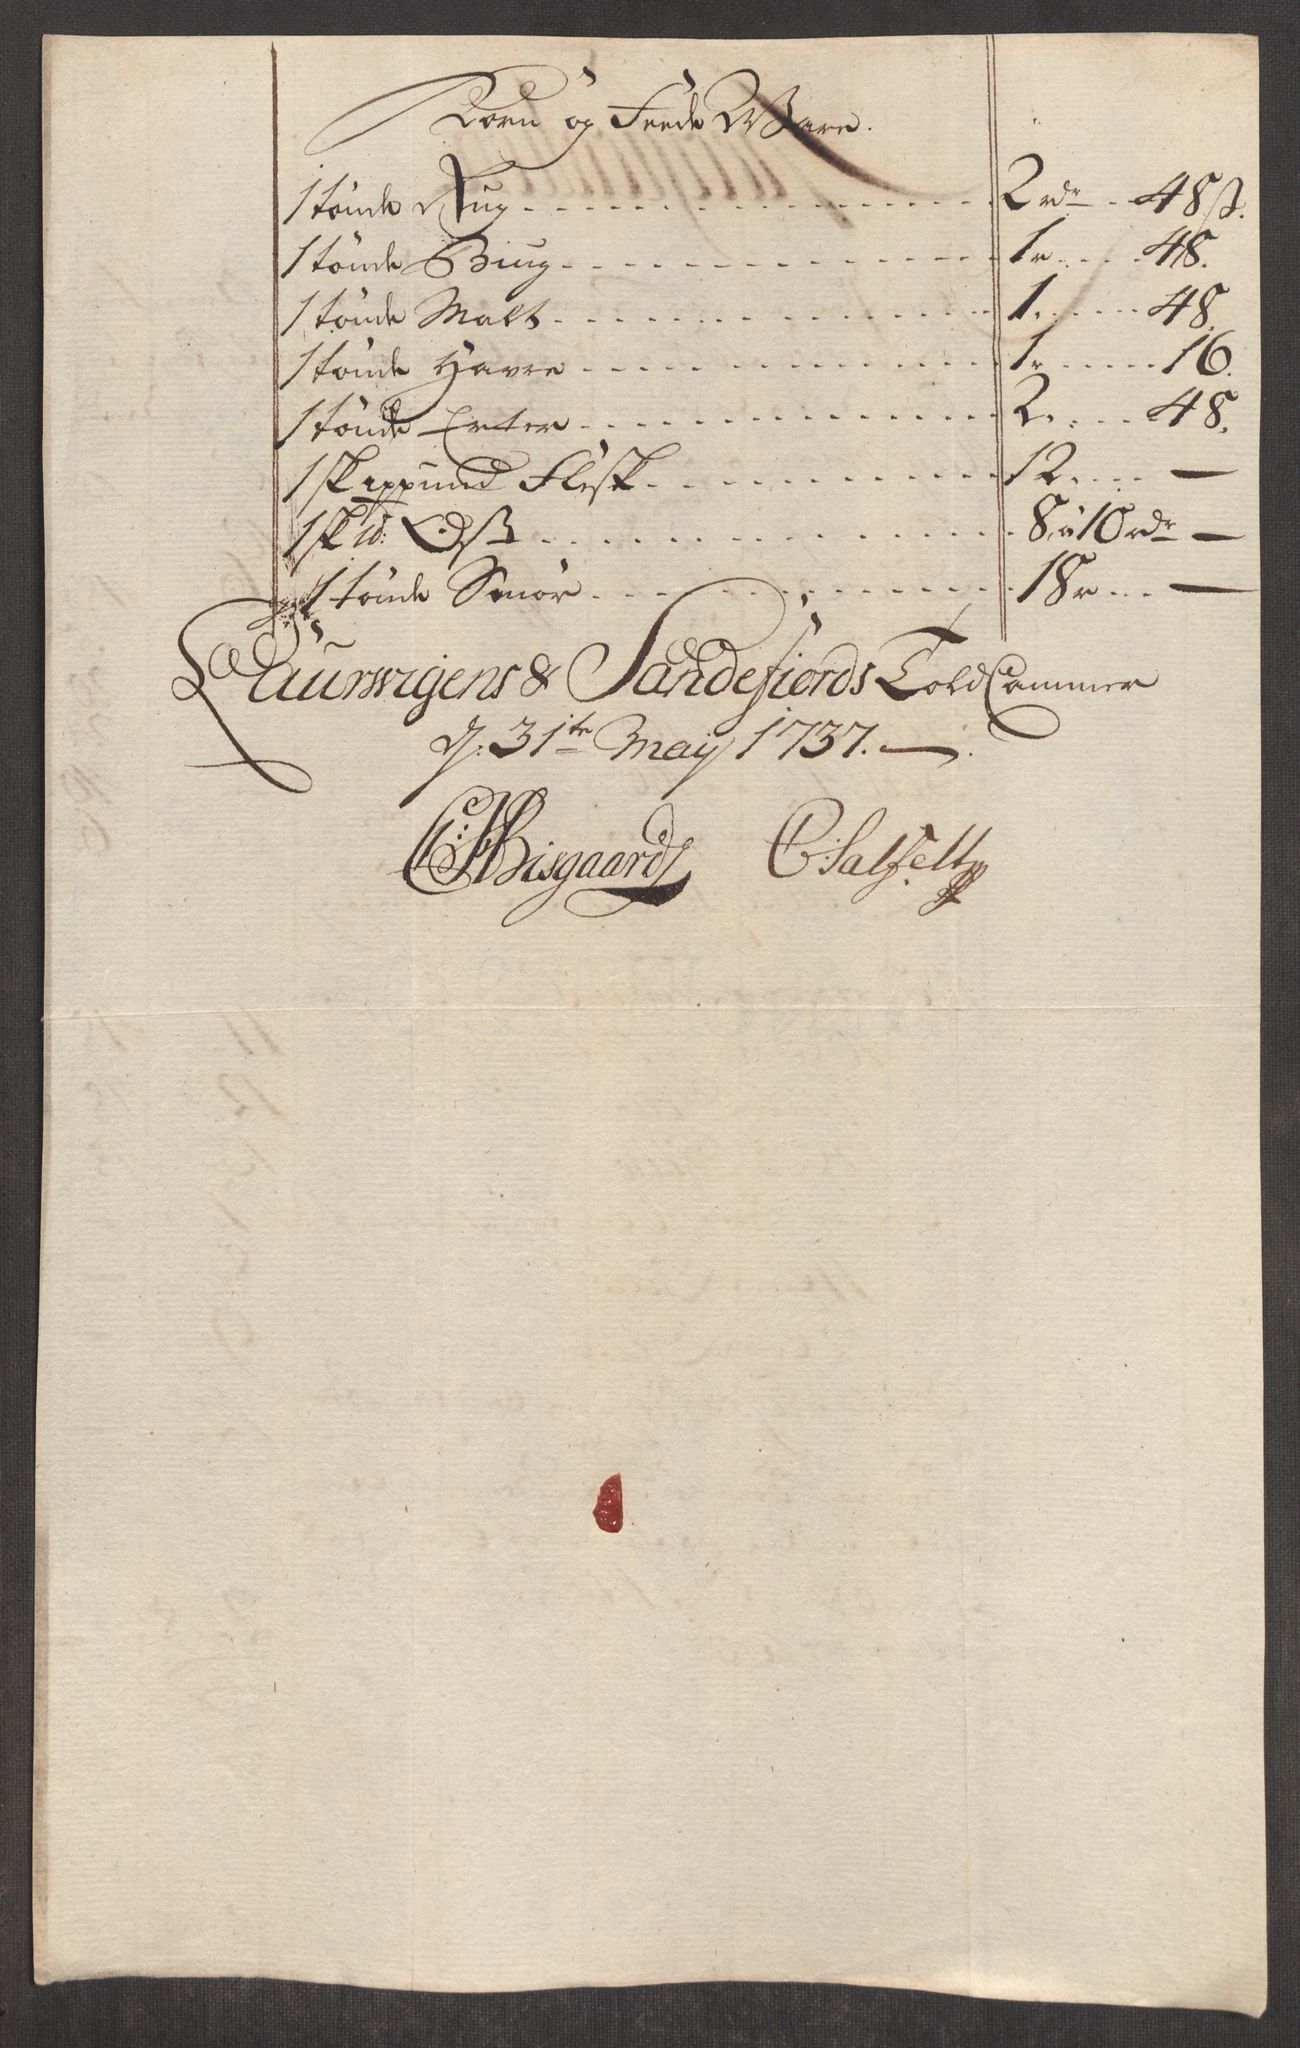 Korn og Feede Ware.
1 tönde Rug 2 rdr 48 ß.
1 tönde Biug 1 r 48.
1 tönde Malt 1. 48.
1 tönde Havre 1 r 16.
1 tönde Erter 2. 48.
1 skippund Flesk 12. —
1 sk td: Ost 8 a 10 rdr —
1 tönde Smör 18 r —
Laurwigens & Sandefiords Told Cammer
d. 31te May 1737. —
Bisgaard C: Salfelt